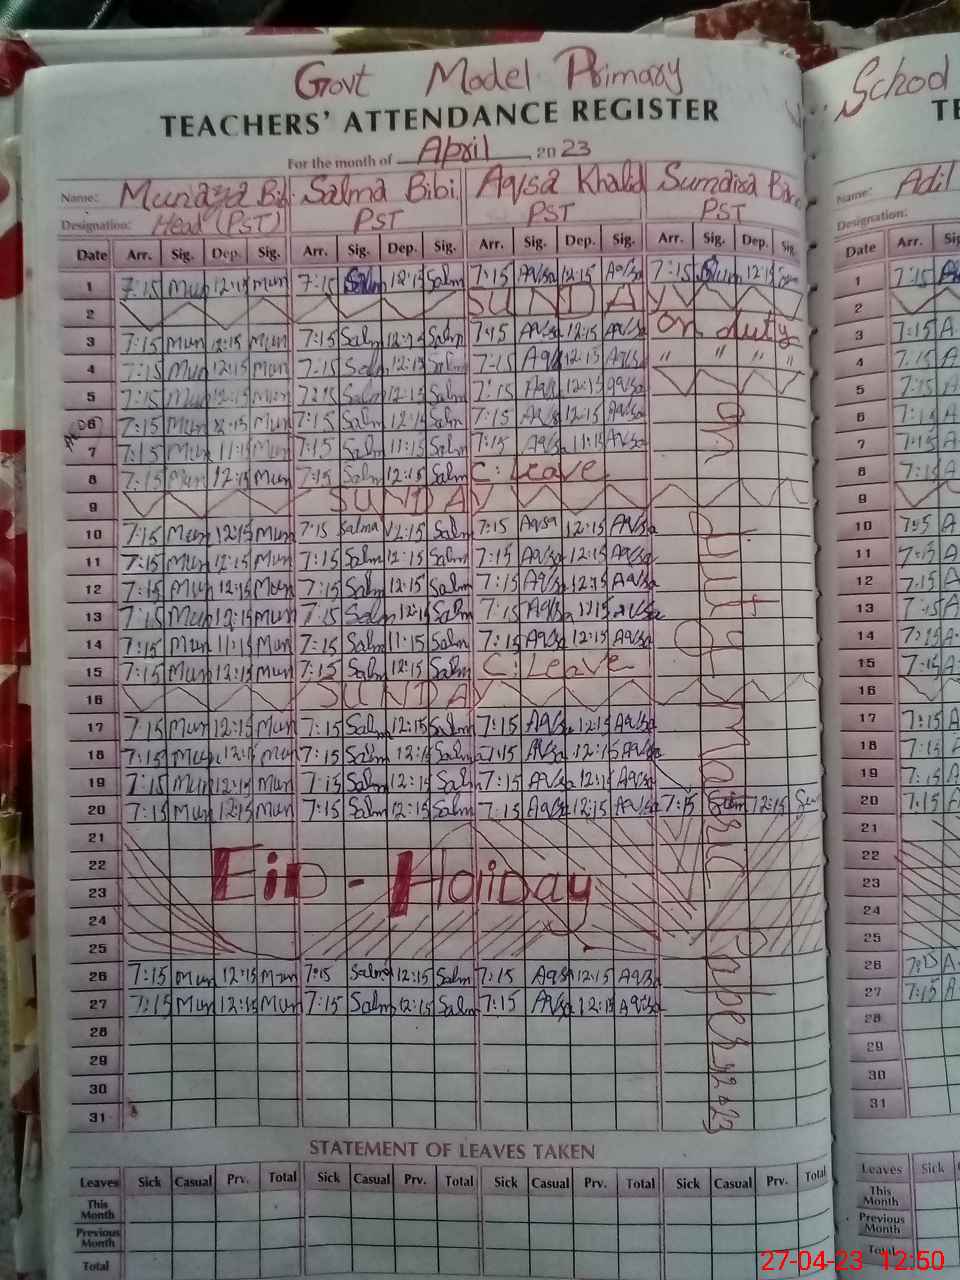 Govt Model Primary School
TEACHERS' ATTENDANCE REGISTER TE
For the month of April 2023
Name: Salma Bibi Aqsa Khalid Name: Adil
Designation: Head (PST) PST PST PST Designation:
Date Arr. Sig. Dep. Sig. Arr. Sig. Dep. Sig. Arr. Sig. Dep. Sig. Arr. Sig. Dep. Sig. Date Arr.
1 7:15 Mun 12:15 Mun 7:15 Salm 12:15 Salm 7:15 Aqsa 12:15 Aqsa 7:15 Sum 12:15 1 7:15
2 SUNDAY 2
3 7:15 Mun 12:15 Mun 7:15 Salm 12:15 Salm 7:15 Aqsa 12:15 Aqsa on duty 3 7:15 A
4 7:15 Mun 12:15 Mun 7:15 Salm 12:15 Salm 7:15 Aqs 12:15 Aqsa " " " " 4 7:15 A
5 7:15 Mun 12:15 Mun 7:15 Salm 12:15 Salm 7:15 Aqs 12:15 Aqsa 5 7:15 A
6 7:15 Mun 12:15 Mun 7:15 Salm 12:15 Salm 7:15 Aqs 12:15 Aqsa 6 7:15 A
7 7:15 Mun 11:15 Mun 7:15 Salm 11:15 Salm 7:15 Aqsa 11:15 Aqsa 7 7:15 A
8 7:15 Mun 12:15 Mun 7:15 Salm 12:15 Salm C: Leave 8 7:15 A
9 SUNDAY 9
10 7:15 Mun 12:15 Mun 7:15 Salma 12:15 Salm 7:15 Aqsa 12:15 Aqsa 10 A
11 7:15 Mun 12:15 Mun 7:15 Salm 12:15 Salm 7:15 Aqsa 12:15 Aqsa 11 7:15 A
12 7:15 Mun 12:15 Mun 7:15 Salm 12:15 Salm 7:15 Aqsa 12:15 Aqsa 12 7:15 A
13 7:15 Mun 12:15 Mun 7:15 Salm 12:15 Salm 7:15 Aqsa Aqsa 13 7:15 A
14 7:15 Mun 11:15 Mun 7:15 Salm 11:15 Salm 7:15 Aqsa 12:15 Aqsa 14 7:15 A
15 7:15 Mun 12:15 Mun 7:15 Salm 12:15 Salm C: Leave 15 7:15 A
16 SUNDAY 16
17 7:15 Mun 12:15 Mun 7:15 Salm 12:15 Salm 7:15 Aqsa 12:15 Aqsa 17 7:15 A
18 7:15 Mun 12:15 Mun 7:15 Salm 12:15 Salm 7:15 Aqsa 12:15 Aqsa 18 7:15 A
19 7:15 Mun 12:15 Mun 7:15 Salm 12:15 Salm 7:15 Aqsa 12:15 Aqsa 19 7:15 A
20 7:15 Mun 12:15 Mun 7:15 Salm 12:15 Salm 7:15 Aqsa 12:15 Aqsa 7:15 Sum 12:15 20 7:15 A
21 21
22 22
23 Eid - Holiday 23
24 24
25 25
26 7:15 Mun 12:15 Mun 7:15 Salma 12:15 Salm 7:15 Aqsa 12:15 Aqsa 26 7:15 A
27 7:15 Mun 12:15 Mun 7:15 Salm 12:15 Salm 7:15 Aqsa 12:15 Aqsa 27 7:15 A
28 28
29 29
30 30
31 31
on duty of Paper 2023
STATEMENT OF LEAVES TAKEN
Leaves Sick Casual Prv. Total Sick Casual Prv. Total Sick Casual Prv. Total Sick Casual Prv. Total Leaves Sick
This Month This Month
Previous Month Previous Month
Total Total
27-04-23 12:50